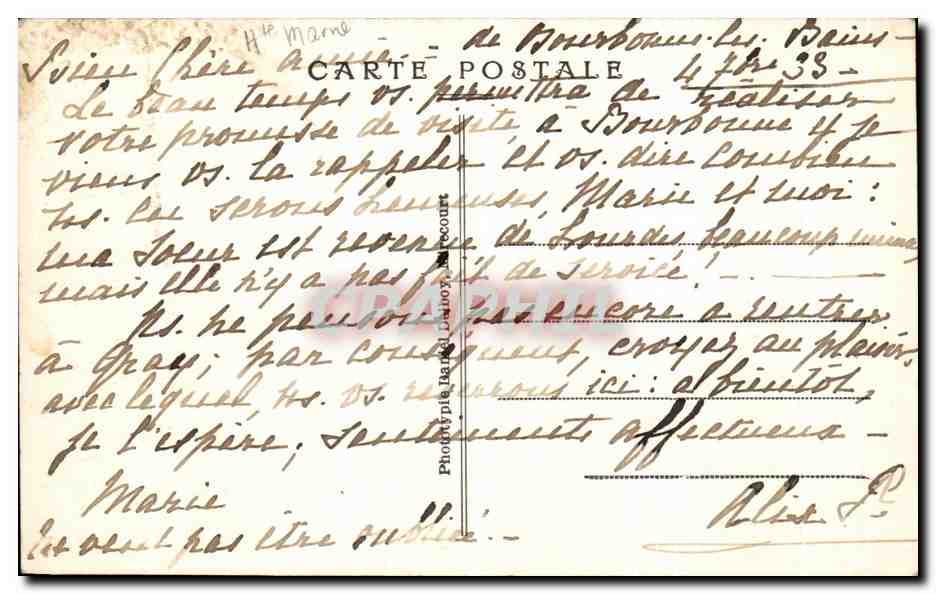 Hte Marne
de Bourbonne-les-Bains -
Bien Chère amie -
CARTE POSTALE
4 7bre 33 -
Le beau temps vs. permettra de réaliser
votre promesse de visite, à Bourbonne & je
viens vs. la rappeler, et vs. dire combien
ns. en serons heureuses, Marie et moi :
ma soeur est revenue de Lourdes beaucoup mieux,
mais elle n'y a pas fait de service ! -
Ns. ne pensons pas encore a rentrer
à Gray ; par conséquent, croyez au plaisir,
avec lequel, ns. vs. reverrons ici : a bientôt,
je l'espère ; sentiments affectueux -
Marie
Alix P.
ne veut pas être oubliée. -
Phototypie Daniel Delboy, Mirecourt
CRAPHIL